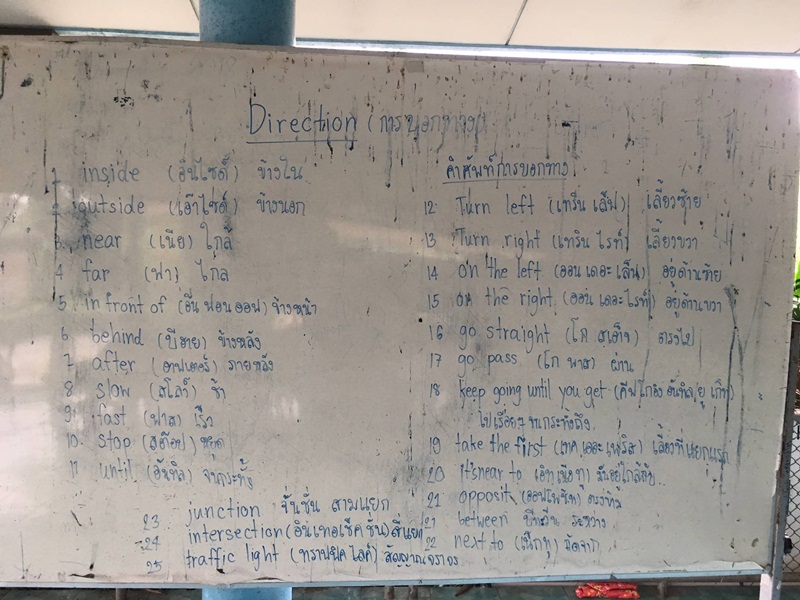 Direction (การบอกทาง)
1 inside (อินไซด์) ข้างใน
2 outside (เอ๊าไซด์) ข้างนอก
3. near (เนีย) ใกล้
4 far (ฟา) ไกล
5 in front of (อิน ฟอน ออฟ) ข้างหน้า
6 behind (บีฮาย) ข้างหลัง
7 after (อาฟเตอร์) ภายหลัง
8 slow (สโลว์) ช้า
9 fast (ฟาส) เร็ว
10. stop (สต๊อป) หยุด
11 until (อันทิล) จนกระทั่ง
23 junction จั้นชั่น สามแยก
24 intersection (อินเทอเซ็คชั่น) สี่แยก
25 traffic light (ทราฟฟิค ไลท์) สัญญาณจราจร
คำศัพท์การบอกทาง
12. Turn left (เทริน เล็ฟ) เลี้ยวซ้าย
13 Turn right (เทริน ไรท์) เลี้ยวขวา
14 on the left (ออน เดอะ เล็ฟ) อยู่ด้านซ้าย
15 on the right (ออน เดอะ ไรท์) อยู่ด้านขวา
16 go straight (โก สเต็จ) ตรงไป
17 go pass (โก พาส) ผ่าน
18 keep going until you get (คีฟ โกอิง อันทิล ยู เก็ท)
ไปเรื่อยๆ จนกระทั่งถึง
19 take the first (เทค เดอะ เฟริส) เลี้ยวที่แยกแรก
20 it's near to (อิท เนีย ทู) มันอยู่ใกล้กับ
21 opposit (ออฟโพซิท)
21 between บีทวีน ระหว่าง
22 next to (เน็กทู) ถัดจาก